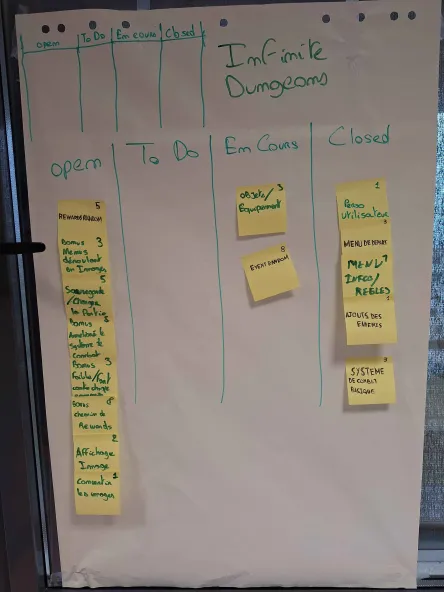 open To Do En Cours Closed
Infinite
Dungeons
open To Do En Cours Closed
5
REWARD RANDOM
Bonus 3
Menus
déroulant
en Images
5
Sauvegarde
/Charger
la Partie
Bonus
Améliorer le
Système de
Combat
Bonus 3
Faible/Fort
contre chaque
Bonus 8
chemin de
Rewards
2
Affichage
Image
1
Convertir
les images
3
Objets/
Equipement
8
EVENT RANDOM
1
Perso
Utilisateur
3
MENU DE DEPART
MENU
INFOS/
REGLES
1
AJOUTS DES
ENEMIES
3
SYSTEME
DE COMBAT
BASIQUE